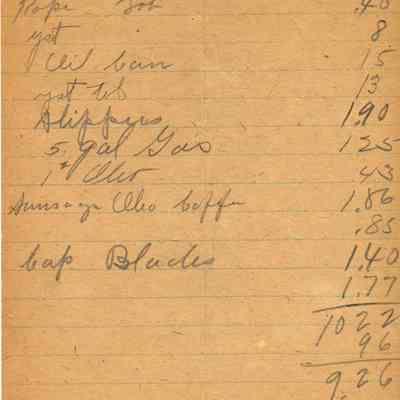 .40
yst 8
Oil can 15
yst 13
Slippers 1.90
5 gal Gas 125
1# Oleo 43
Oleo Coffe 1.86
.85
Cap Blades 1.40
1.77
1022
96
926